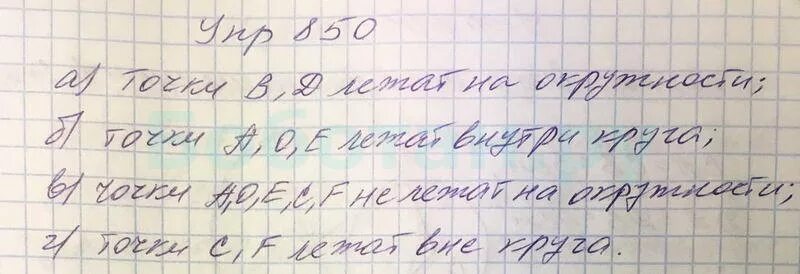 Упр 850
а) точки B, D лежат на окружности;
б) точки A, O, E лежат внутри круга;
в) точки A, O, E, C, F не лежат на окружности;
г) точки C, F лежат вне круга.